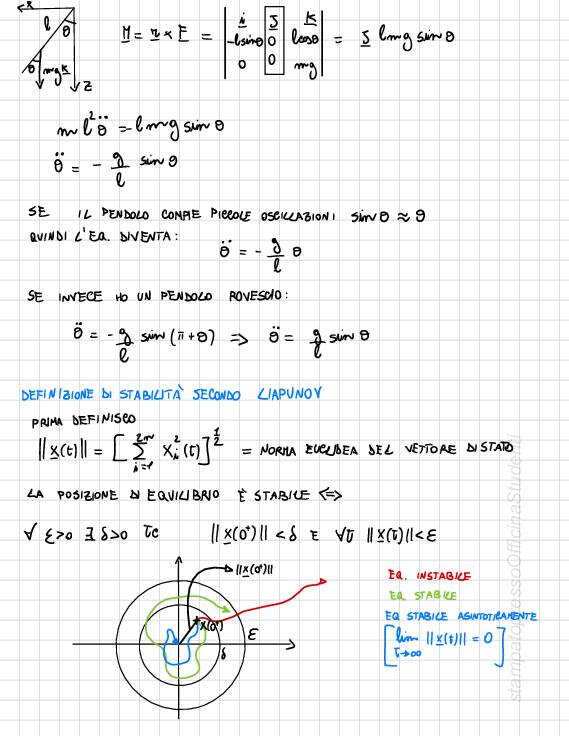 x
l
θ
θ
mgk
z
M = r × F = | i J k ; -lsinθ 0 lcosθ ; 0 0 mg | = J lmg sinθ
m l² θ̈ = lmg sin θ
θ̈ = - g/l sin θ
SE IL PENDOLO COMPIE PICCOLE OSCILLAZIONI sin θ ≈ θ
QUINDI L'EQ. DIVENTA:
θ̈ = - g/l θ
SE INVECE HO UN PENDOLO ROVESCIO:
θ̈ = - g/l sin (π+θ) => θ̈ = g/l sin θ
DEFINIZIONE DI STABILITÀ SECONDO LIAPUNOV
PRIMA DEFINISCO
||x(t)|| = [ Σ_{i=1}^{2n} x_i²(t) ]^{1/2} = NORMA EUCLIDEA DEL VETTORE DI STATO
LA POSIZIONE DI EQUILIBRIO È STABILE <=>
∀ ε>0 ∃ δ>0 tc ||x(0⁺)|| < δ E ∀t ||x(t)|| < ε
||x(0⁺)||
x(0⁺)
δ
ε
EQ. INSTABILE
EQ STABILE
EQ STABILE ASINTOTICAMENTE
[ lim_{t→∞} ||x(t)|| = 0 ]
stampato presso OfficinaStudenti